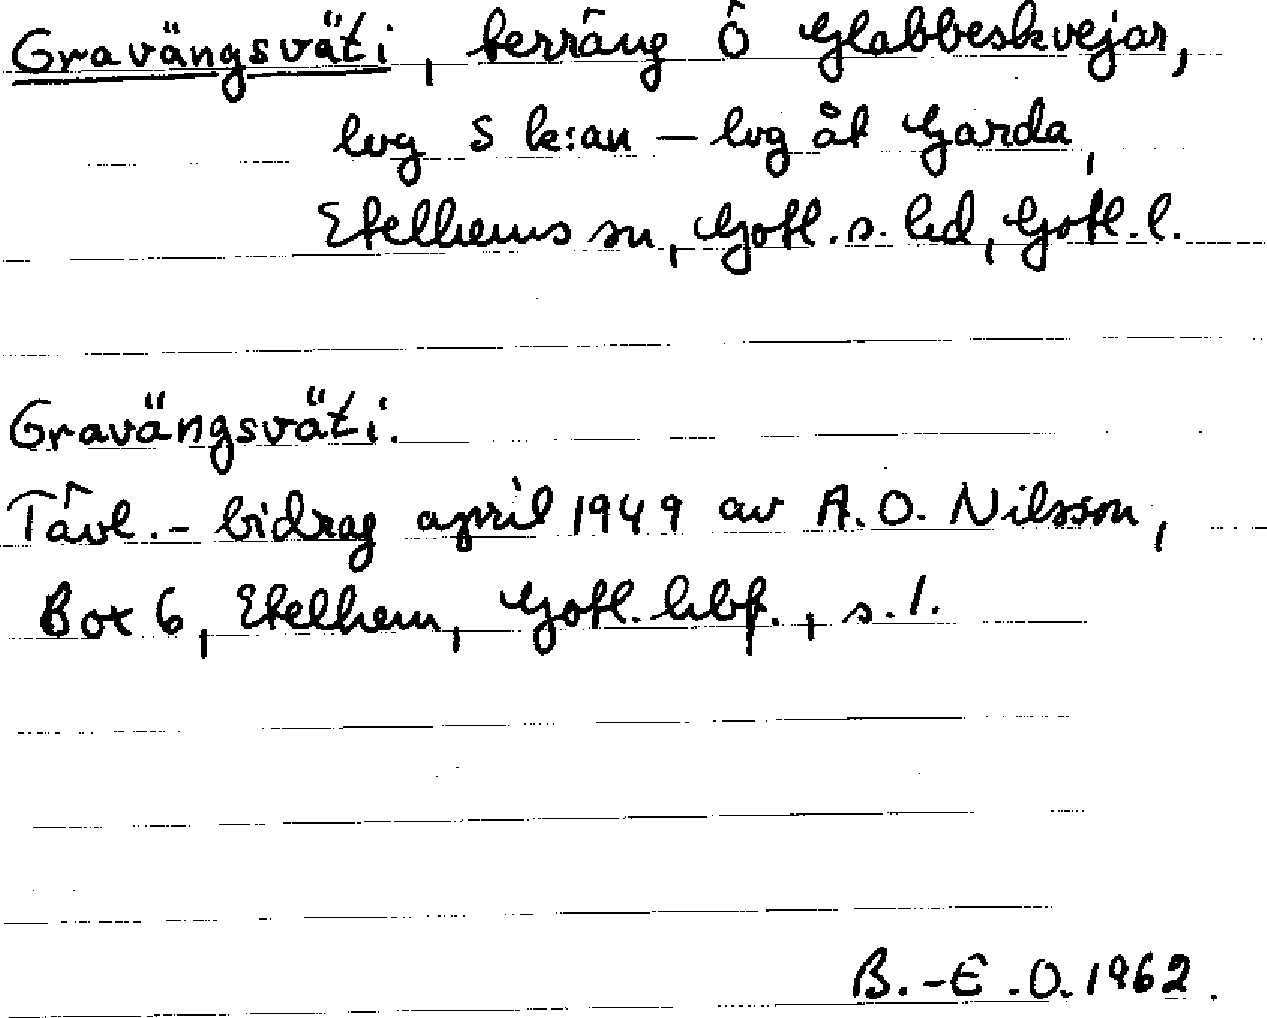 Gravängsväti, terräng Ö Glabbeskvejar,
lvg S k:an – lvg åt Garda,
Etelhems sn, Gotl. s. hd, Gotl. l.
Gravängsväti.
Tävl.- bidrag april 1949 av A. O. Nilsson,
Box 6, Etelhem, Gotl. hbf., s. 1.
B.-E.O. 1962.